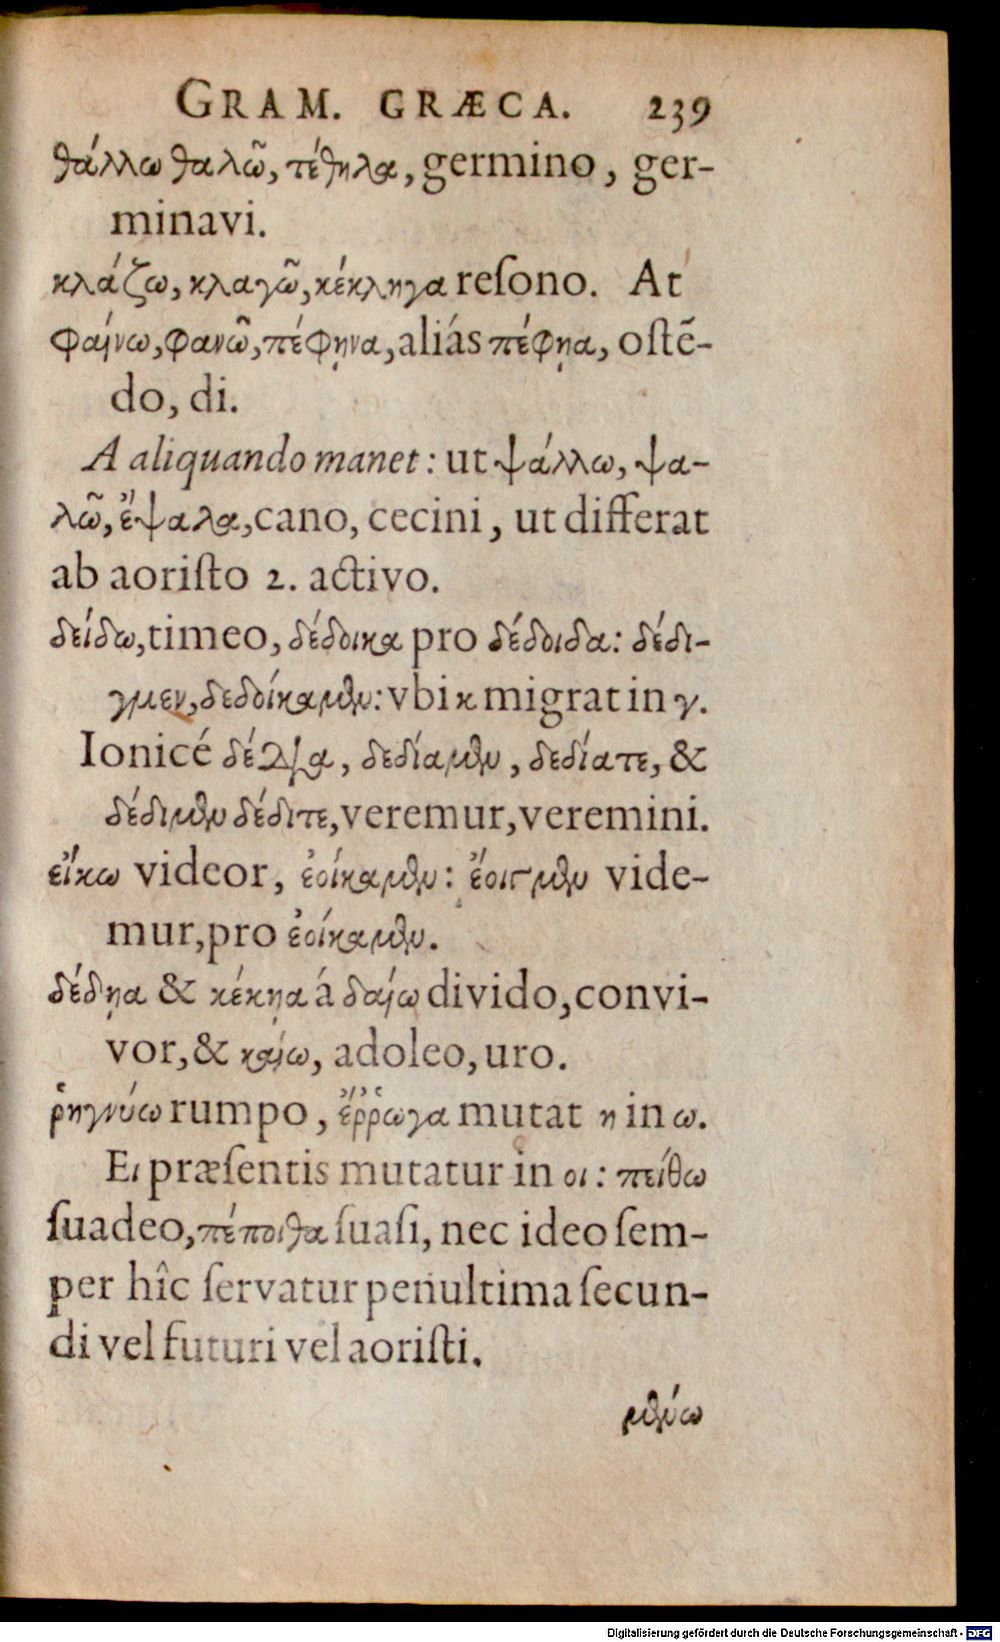 GRAM. GRÆCA. 239
θάλλω θαλῶ, τέθηλα, germino, ger-
minavi.
κλάζω, κλαγῶ, κέκληγα reſono. At
φαίνω, φανῶ, πέφηνα, aliás πέφῃα, oſtẽ-
do, di.
A aliquando manet: ut ψάλλω, ψα-
λῶ, ἔψαλα, cano, cecini, ut differat
ab aoriſto 2. activo.
δείδω, timeo, δέδοικα pro δέδοιδα: δέδι-
γμεν, δεδοίκαμεν: vbi κ migrat in γ.
Ionicé δέδια, δεδίαμεν, δεδίατε, &
δέδιμεν δέδιτε, veremur, veremini.
εἴκω videor, ἐοίκαμεν: ἔοιγμεν vide-
mur, pro ἐοίκαμεν.
δέδῃα & κέκῃα á δαίω divido, convi-
vor, & καίω, adoleo, uro.
ῥηγνύω rumpo, ἔῤῥωγα mutat η in ω.
Ει præſentis mutatur in οι: πείθω
ſuadeo, πέποιθα ſuaſi, nec ideo ſem-
per hîc ſervatur penultima ſecun-
di vel futuri vel aoriſti.
μενύω
Digitalisierung gefördert durch die Deutsche Forschungsgemeinschaft - DFG